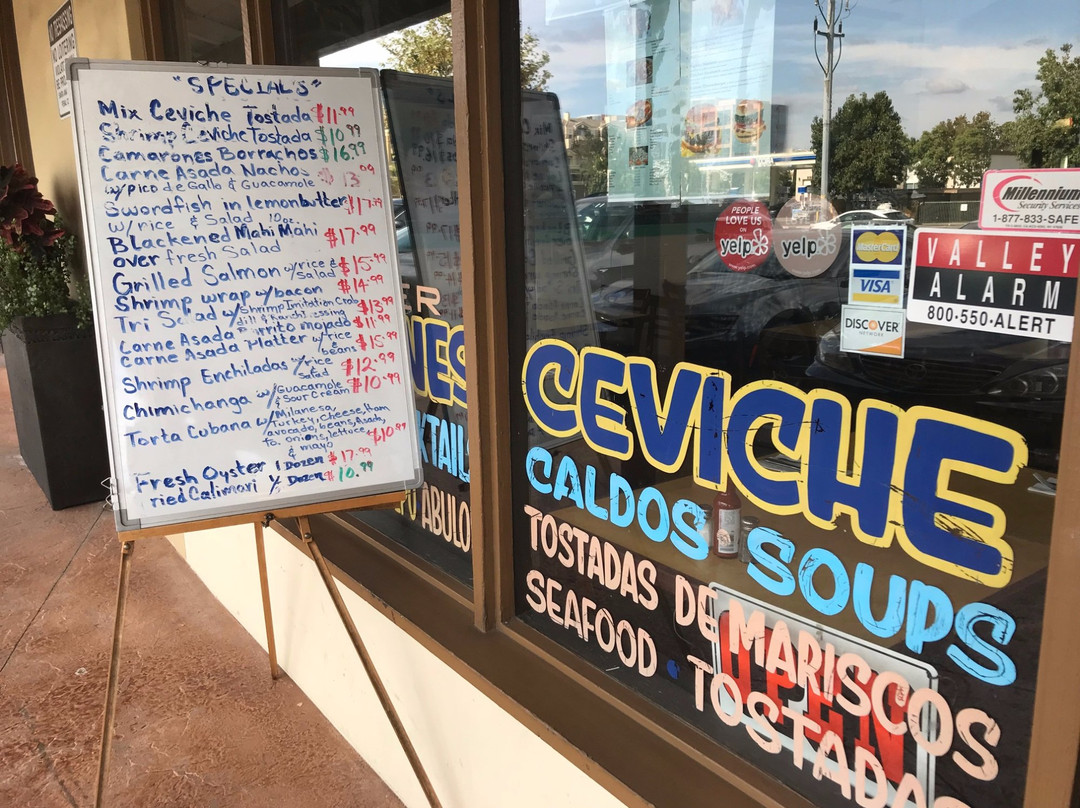 "SPECIAL'S"
Mix Ceviche Tostada $11.99
Shrimp Ceviche Tostada $10.99
Camarones Borrachos $16.99
Carne Asada Nachos
w/Pico de Gallo & Guacamole $13.99
Swordfish in lemonbutter $17.99
w/rice & Salad 10oz.
Blackened Mahi Mahi $17.99
over fresh Salad
Grilled Salmon w/rice & Salad $15.99
Shrimp wrap w/bacon $14.99
Tri Salad w/Shrimp Imitation Crab $13.99
Carne Asada Burrito mojado $11.99
Carne Asada Platter w/rice & beans $15.99
Shrimp Enchiladas w/rice & Salad $12.99
Chimichanga w/Guacamole & Sour Cream $10.99
Torta Cubana w/Milanesa,
Turkey, Cheese, Ham,
avocado, beans, Asada,
to. onions, lettuce $10.99
& mayo
Fresh Oyster 1 Dozen $17.99
Fried Calimari 1/2 Dozen $10.99
ER
NES
KTAIL
ABULO
PEOPLE
LOVE US
ON
yelp
yelp
MasterCard
VISA
DISCOVER
NETWORK
Millennium
Security Services
1-877-833-SAFE
VALLEY
ALARM
800·550·ALERT
CEVICHE
CALDOS SOUPS
TOSTADAS DE MARISCOS
SEAFOOD • TOSTADAS
OPEN